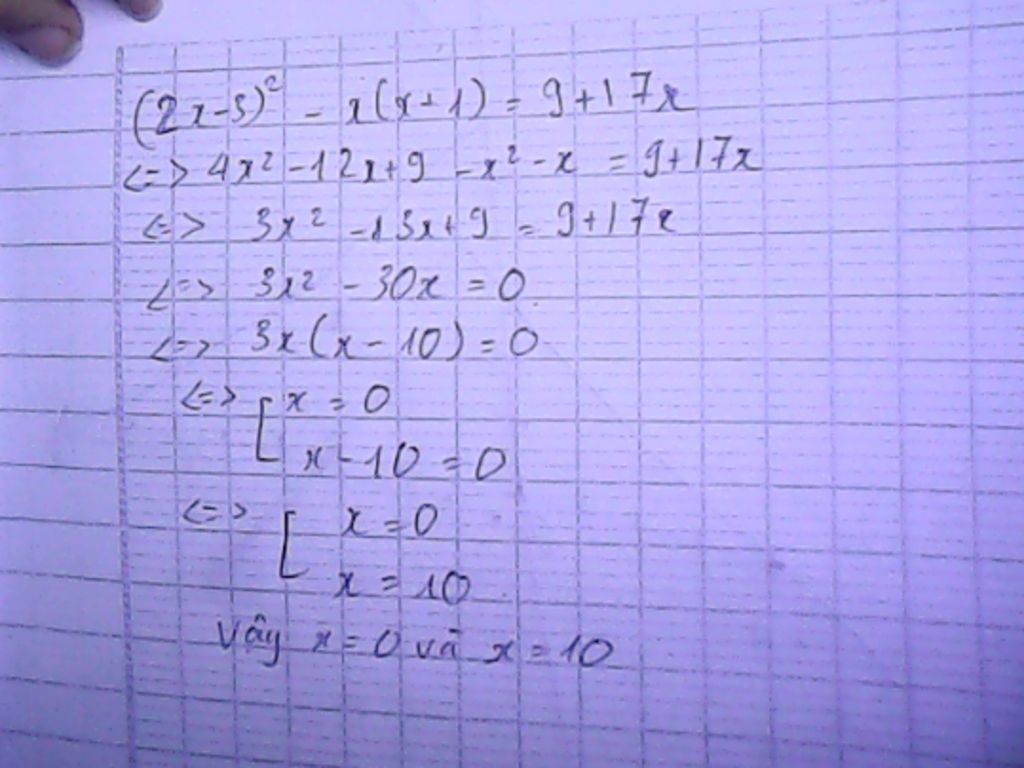 (2x-3)² - x(x+1) = 9+17x
<=> 4x² -12x+9 -x² -x = 9+17x
<=> 3x² -13x+9 = 9+17x
<=> 3x² - 30x = 0
<=> 3x(x-10) = 0
<=> [ x = 0
x-10 = 0
<=> [ x = 0
x = 10
Vây x = 0 và x = 10